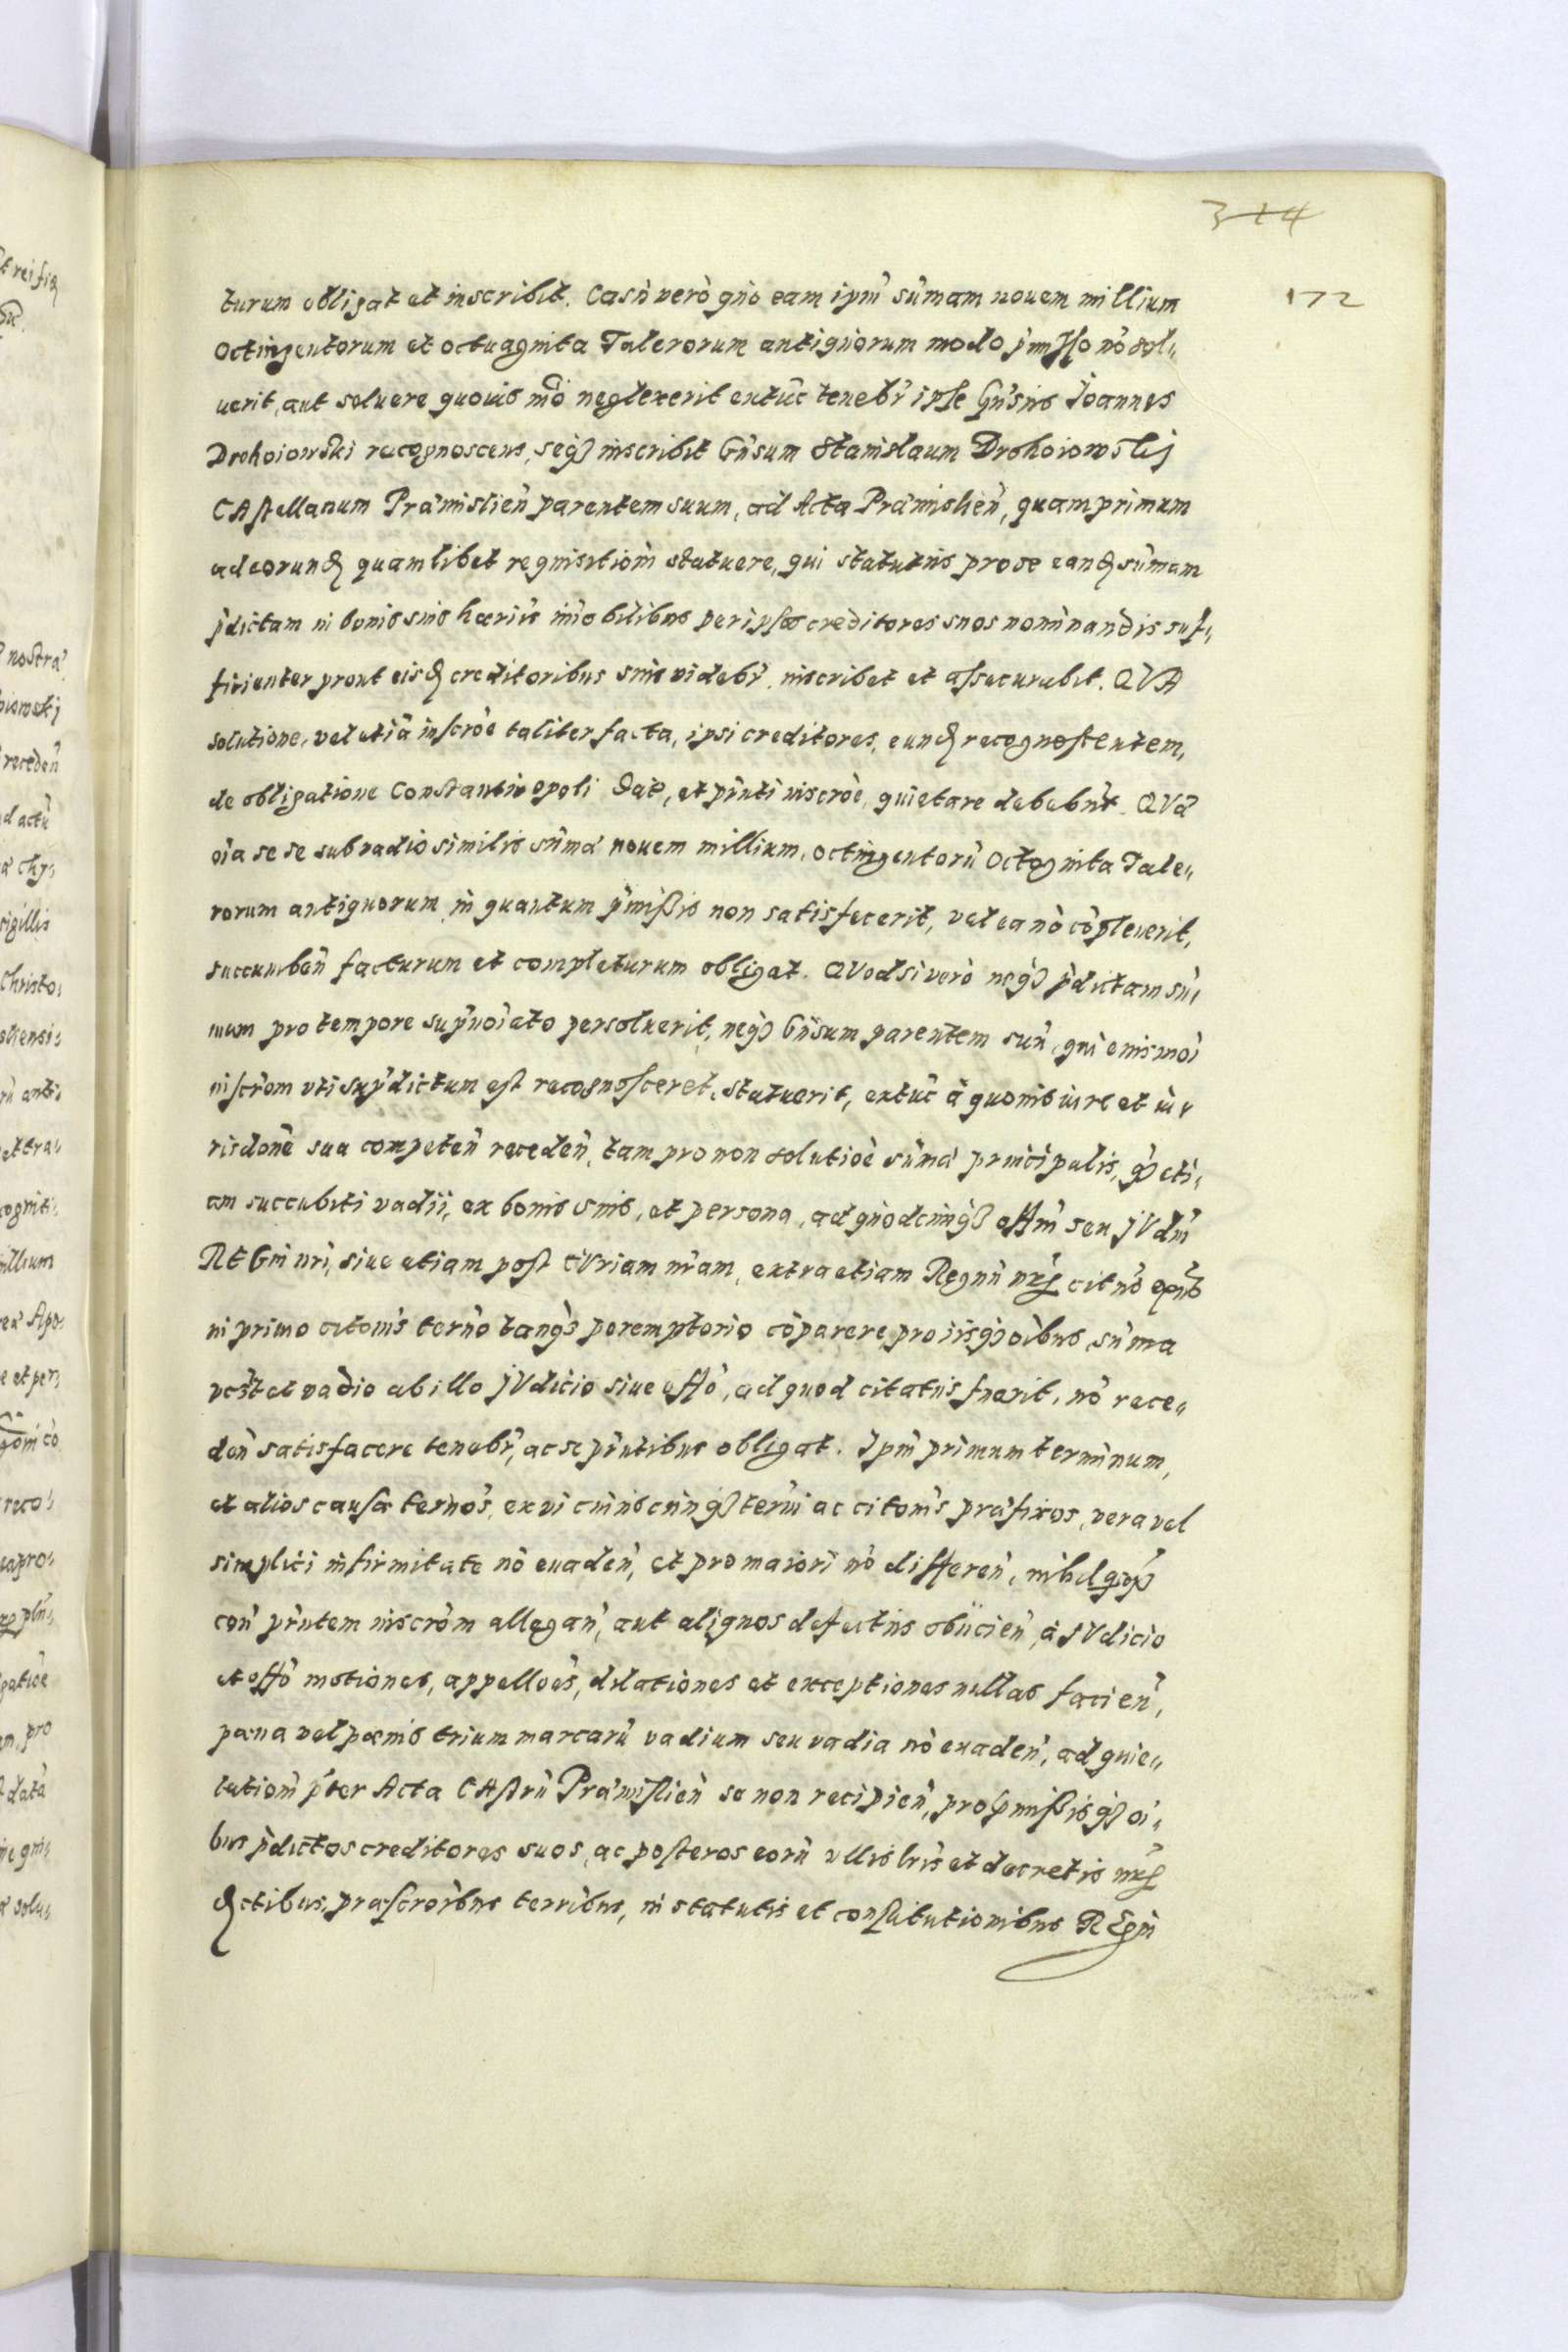 314
172
turum obligat et inscribit. Casu vero quo eam ipm̃ sum̃am nouem millium
Octingentorum et octuaginta Talerorum antiquorum modo p̃misso nõ sol„
uerit, aut soluere quouis mõ neglexerit extũc tenebr̃ ipse Gñsus Joannes
Drohoiowski recognoscens, seq3 inscribit Gñsum Stanislaum Drohoiowskij
CAstellanum Præmislień parentem suum, ad Acta Præmislień, quamprimum
ad eorund quamlibet requisitiom̃ statuere, qui statutus pro se eand sum̃am
p̃dictam in bonis suis hæriis im̃obilibus per ipsos creditores suos nominandis suf„
ficienter prout eisd creditoribus suis videbr̃. inscribet et assecurabit. QVA
solutione, vel etiã inscrõe taliter facta, ipsi creditores, eund recognoscentem,
de obligatione Constantinopoli dat, et p̃nti inscrõe, quietare debebũt. QVæ
oĩa se se sub vadio similis sum̃æ nouem millium, octingentorũ Octoginta Tale„
rorum antiquorum in quantum p̃mißis non satisfecerit, vel ea nõ cõpleuerit,
succumbeń facturum et completurum obligat. QVodsi vero neq3 p̃dictam sum̃„
mam pro tempore sup̃noĩato persoluerit, neq3 Gñsum parentem suũ, qui eiusmoi
inscrom̃ vti sup̃dictum est recognosceret, statuerit, extũc à quouis iure et iu„
risdone sua competeń recedeń, tam pro non solutioe sum̃æ principalis, q3 eti„
am succubiti vadii, ex bonis suis, et persona, ad quodcunq3 offm̃ seu jVdm̃
REGni nri, siue etiam post cVriam nram, extra etiam Regnũ nrũ citus
in primo citonis terno tanq3 peremptorio cõparere, pro iisq3 oĩbus sum̃a
et vadio ab illo jVdicio siue offo, ad quod citatus fuerit, nõ rece„
deń satisfacere tenebr̃, ac se p̃ntibus obligat. Ipm̃ primum terminum,
et alios causæ ternos, ex vi cuiuscunq3 terni ac citonis præfixos, vera vel
simplici infirmitate nõ euadeń, et pro maiori nõ differeń, nihilq3
coń p̃ntem inscrom̃ allegań, aut aliquos defectus obiicień, à jVdicio
et offo motiones, appelloes, dilationes et exceptiones nullas facień,
pæna vel pænis trium marcarũ vadium seu vadia nõ euadeń, ad quie„
tationem p̃ter Acta CAstrũ Præmislień se non recipień, pro p̃mißisq3 oĩ„
bus p̃dictos creditores suos, ac posteros eorũ vllis lris et decretis nris
ctibus, præscroĩbus terribus, in statutis et constitutionibus REgni